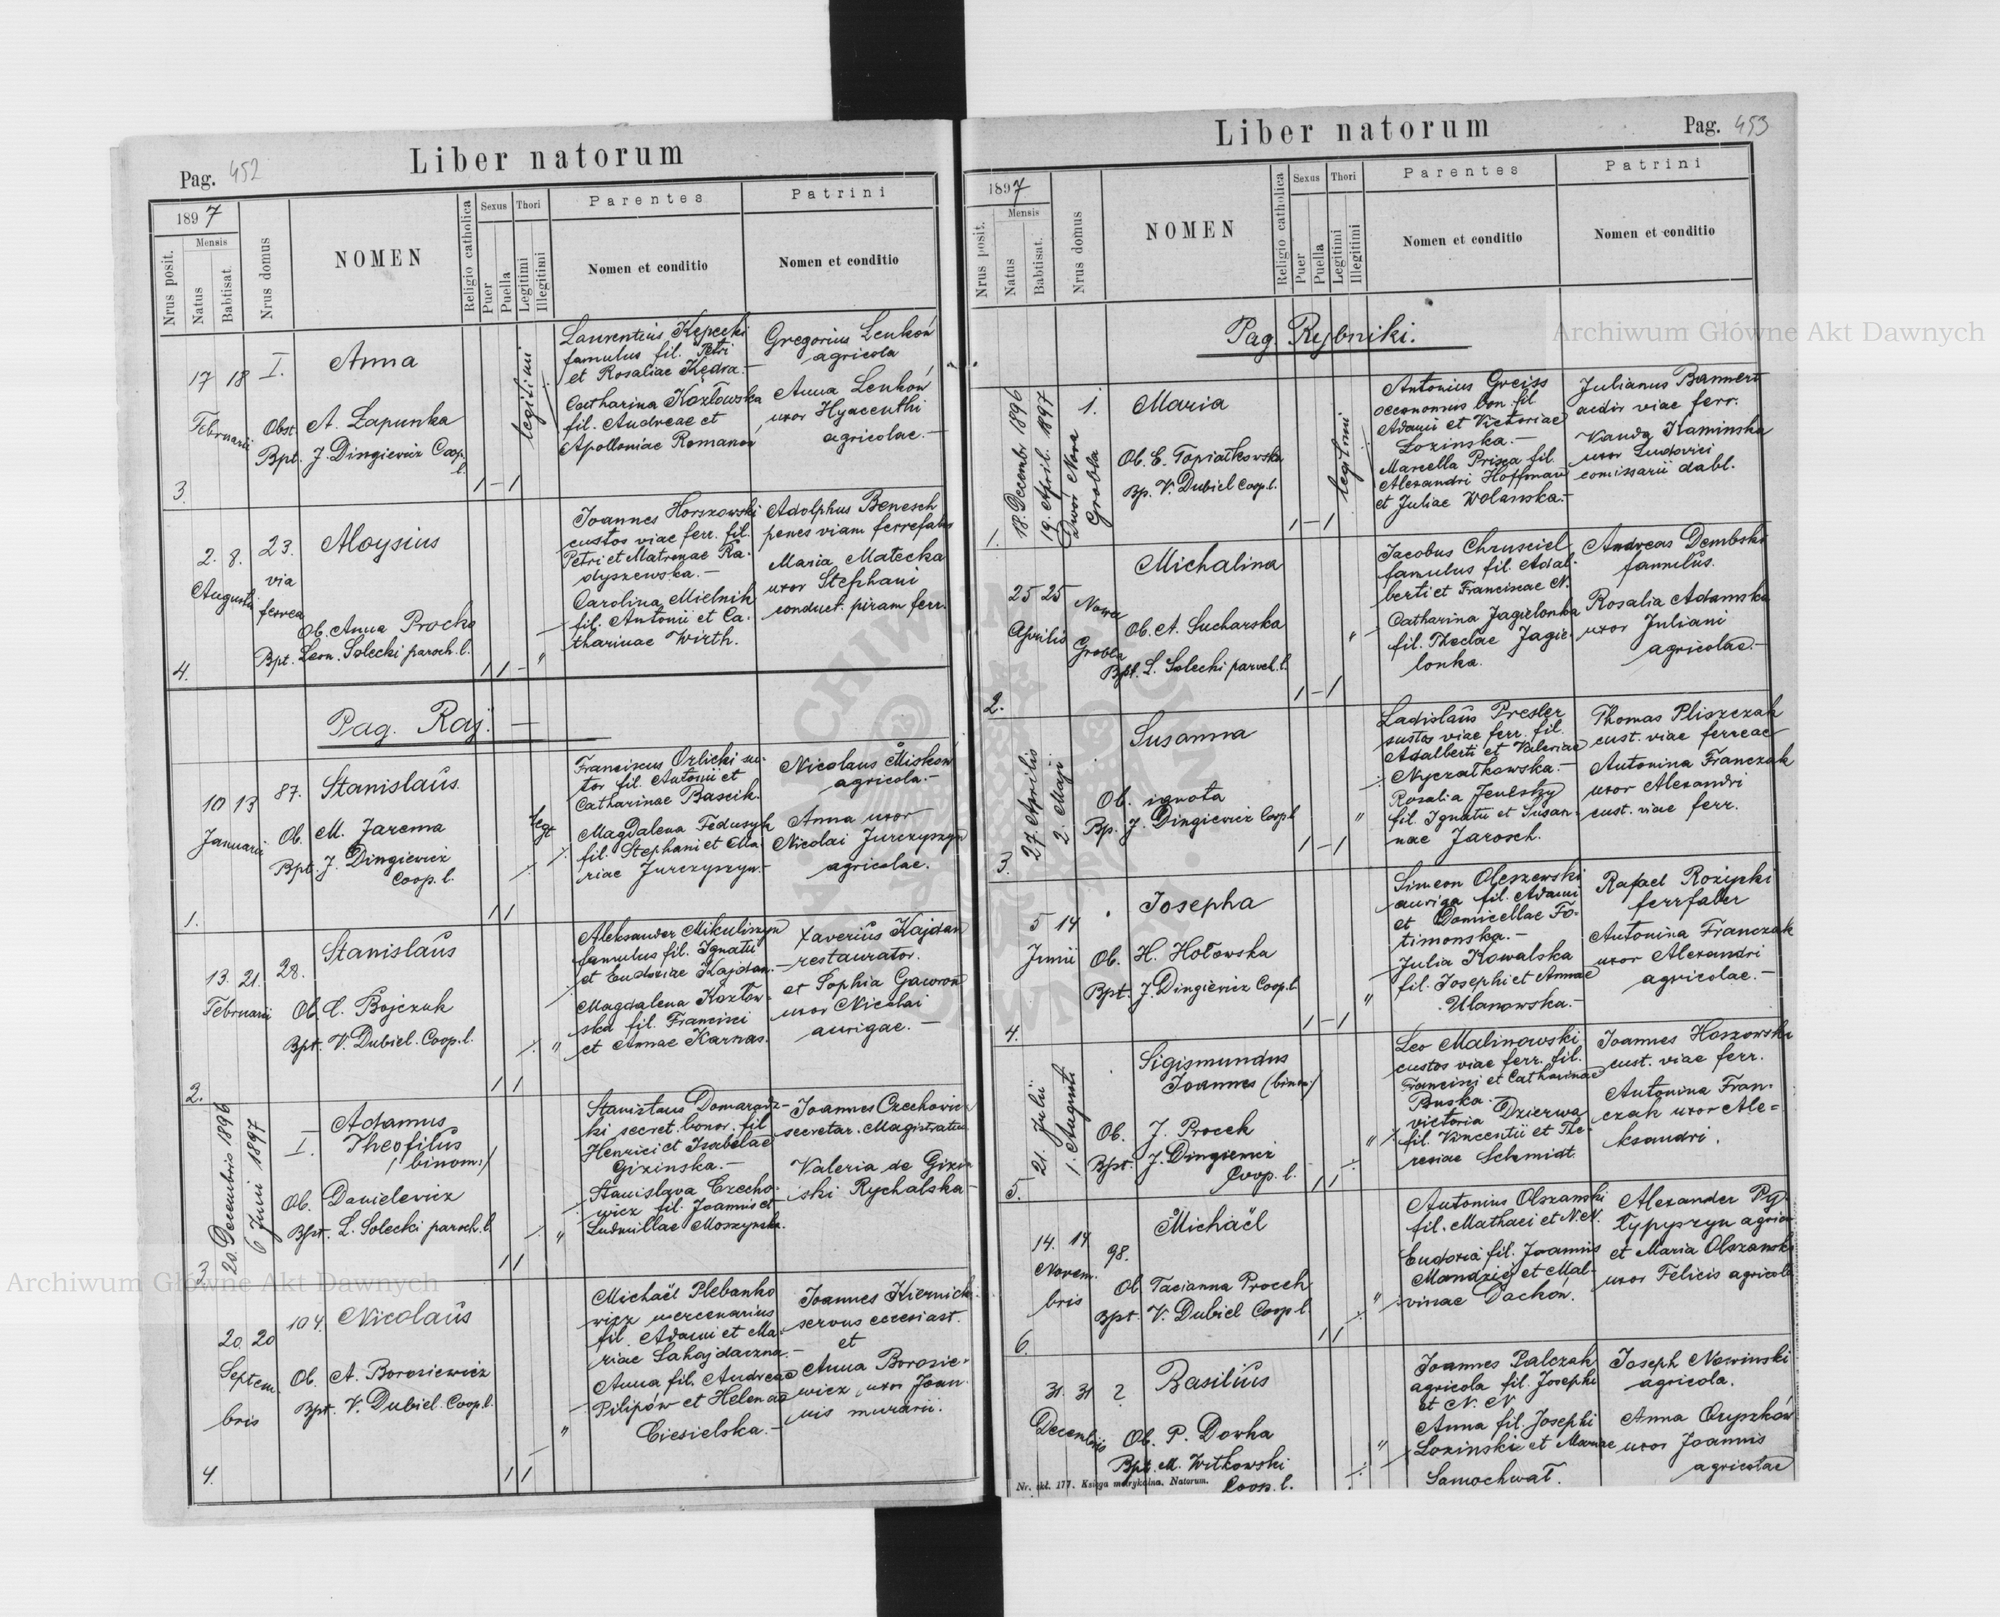 Pag. 452
Liber natorum
1897
Nrus posit.
Mensis
Natus
Babtisat.
Nrus domus
NOMEN
Religio catholica
Sexus
Puer
Puella
Thori
Legitimi
Illegitimi
Parentes
Nomen et conditio
Patrini
Nomen et conditio
3.
17 18
Februarii
I.
Anna
Obst. A. Łapunka
Bpt. J. Dingiewicz Coop.
l.
1 - 1
legitimi
Laurentius Kępecki
famulus fil. Petri
et Rosaliae Kędra.-
Catharina Kozłowska
fil. Andreae et
Apolloniae Romanow
Gregorius Leukón
agricola
Anna Leukón
uxor Hyacenthi
agricolae.-
4.
2. 8.
Augusti
23.
via
ferrea
Aloysius
Ob. Anna Procka
Bpt. Leon. Solecki paroch. l.
1 1 -
"
Joannes Horszowski
custos viae ferr. fil.
Petri et Matronae Ra-
dyszewska.-
Carolina Mielnik
fil. Antonii et Ca-
tharinae Wirth.
Adolphus Benesch
penes viam ferrefabr
Maria Matecka
uxor Stephani
conduct. piram ferr.
Pag. Raj. -
1.
10 13
Januarii
87.
Stanislaus
Ob. M. Jarema
Bpt. J. Dingiewicz
Coop. l.
1 1
legt
Franciscus Orlicki su-
tor fil. Antonii et
Catharinae Bascik.
Magdalena Fedusyk
fil. Stephani et Ma-
riae Jurczyszyn.-
Nicolaus Misków
agricola.-
Anna uxor
Nicolai Jurczyszyn
agricolae.
2.
13. 21.
Februarii
28.
Stanislaus
Ob. C. Bojczuk
Bpt. V. Dubiel. Coop. l.
1 1
"
Aleksander Mikuliszyn
famulus fil. Ignatii
et Eudoxiae Kajdan.-
Magdalena Kozłow-
ska fil. Francisci
et Annae Karnas.
Xaverius Kajdan
restaurator.
et Sophia Gawron
uxor Nicolai
aurigae.-
3.
20. Decembris 1896
6 Juni 1897
I.
Adamus
Theofilus
(binom:)
Ob. Danielevicz
Bpt. L. Solecki paroch. l.
1 1
"
Stanislaus Domaradz-
ki secret. honor. fil
Henrici et Isabelae
Gizinska.-
Stanislava Czecho-
wicz fil. Joannis et
Ludmillae Moszynska.
Joannes Czechowicz
secretar. Magistratus
Valeria de Gizin
ski Rychalska-
4.
20. 20
Septem-
bris
104.
Nicolaus
Ob. A. Borosiewicz
Bpt. V. Dubiel. Coop. l.
1 1
"
Michaël Plebanko
wicz mercenarius
fil. Adami et Ma-
riae Sahajdaczna.-
Anna fil. Andreae
Pilipów et Helenae
Ciesielska.-
Joannes Kiernick
servus eccesiast.
et
Anna Borosie-
wicz, uxor Joan-
nis murarii.
Liber natorum
Pag. 453
1897
Nrus posit.
Mensis
Natus
Babtisat.
Nrus domus
NOMEN
Religio catholica
Sexus
Puer
Puella
Thori
Legitimi
Illegitimi
Parentes
Nomen et conditio
Patrini
Nomen et conditio
Pag. Rybniki.
1.
18. Decembr 1896
19. April. 1897
Dwór Nowa
Grobla
1.
Maria
Ob. E. Topiatkowska
Bp. V. Dubiel Coop. l.
1 - 1
legitimi
Antonius Greiss
oeconomus bon. fil.
Adami et Victoriae
Lozinska.-
Marcella Prisca fil.
Alexandri Hoffman
et Juliae Wolanska.-
Julianus Bannert
aedir viae ferr.
Vanda Kaminska
uxor Ludovici
comissarii dabl.
2.
25 25
Aprilis
Nowa
Grobla
Michalina
Ob. A. Sucharska
Bpt. L. Solecki paroch. l.
1 - 1
"
Jacobus Chrusciel
famulus fil. Adal-
berti et Franciscae N.
Catharina Jagielonka
fil. Theclae Jagie-
lonka.
Andreas Dembski
famulus.
Rosalia Adamska
uxor Juliani
agricolae.-
3.
27. Aprilis
2. Maji
Susanna
Ob. ignota
Bp. J. Dingiewicz Coop l
1 - 1
"
Ladislaus Presler
custos viae ferr. fil.
Adalberti et Valeriae
Nyczatkowska.-
Rosalia
fil. Ignatii et Susan-
nae Jarosch.
Thomas Pliszczak
cust. viae ferreae
Antonina Franczak
uxor Alexandri
cust. viae ferr.
4.
5 14
Junii
Josepha
Ob. H. Hołowska
Bpt. J. Dingiewicz Coop. l.
1 - 1
"
Simeon Oleszewski
auriga fil. Adami
et Domicellae Fo-
timonska.-
Julia Kowalska
fil. Josephi et Annae
Ulanowska.-
Rafael Rozipki
ferrfaber
Antonina Franczak
uxor Alexandri
agricolae.-
5.
21. Julii
1. Augusti
Sigismundus
Joannes (binom:)
Ob. J. Procek
Bpt. J. Dingiewicz
Coop. l.
1 1
"
Leo Malinowski
custos viae ferr. fil.
Francisci et Catharinae
Buska.
Victoria Dzierwa
fil. Vincentii et The-
resiae Schmidt.
Joannes Hoszowski
cust. viae ferr.
Antonina Fran-
czak uxor Ale=
ksandri.
6.
14. 14
Novem-
bris
98.
Michaël
Ob Tacianna Procek
Bpt. V. Dubiel Coop l.
1 1
"
Antonius Olszanski
fil. Mathaei et N. N.
Eudoxia fil. Joannis
Mandziej et Mal-
vinae Dackón.
Alexander Py-
typyszyn agrico
et Maria Olszanska
uxor Felicis agricola
31. 31
Decembris
?
Basilius
Ob. P. Dovha
Bpt. M. Witkowski
Coop. l.
"
Joannes Palczak
agricola fil. Josephi
et N. N.
Anna fil. Josephi
Lozinski et Mariae
Samochwał.
Joseph Nowinski
agricola.
Anna Oryszków
uxor Joannis
agricolae
Nr. skł. 177. Księga metrykalna. Natorum.
Archiwum Główne Akt Dawnych
Archiwum Główne Akt Dawnych